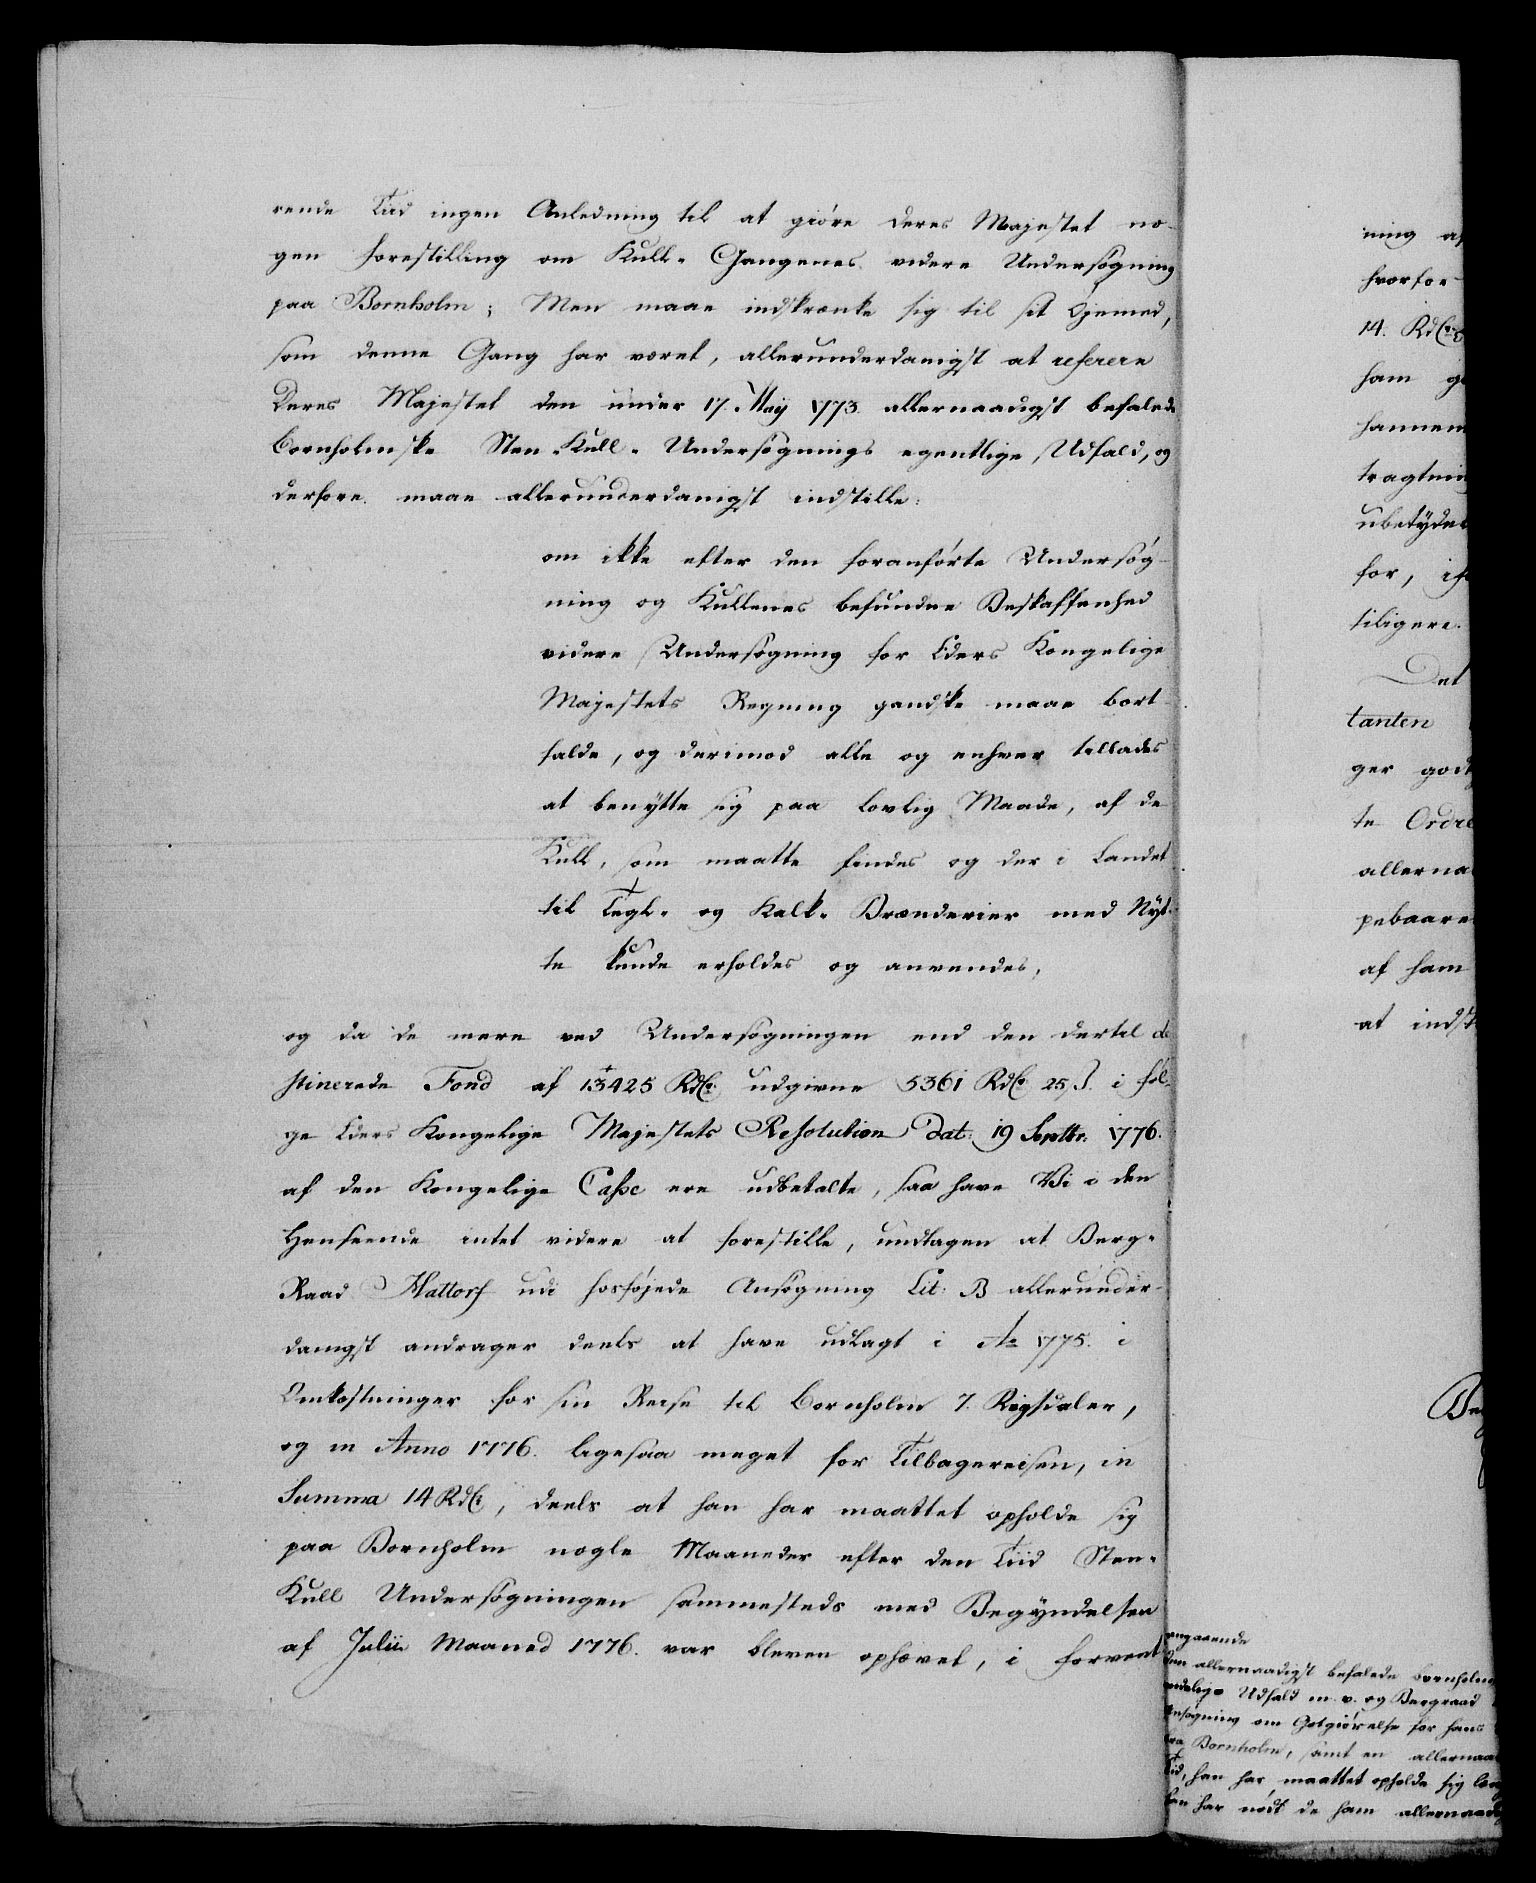 rende Tiid ingen Anledning til at giöre Deres Majestet no-
gen Forestilling om Kull-Gangenes videre Undersögning
paa Bornholm; Men maae indskrænke sig til sit Öjemed,
som denne Gang har været, allerunderdanigst at referere
Deres Majestet den under 17. Maÿ 1773. allernaadigst befalede
Bornholmske Steen-Kull-Undersögnings egentlige Udfald, og
derfore maae allerunderdanigst indstille:
om ikke efter den foranförte Undersög-
ning og Kullenes befundne Beskaffenhed
videre Undersögning for Eders Kongelige
Majestets Regning gandske maae bort-
falde, og derimod alle og enhver tillades
at benÿtte sig paa lovlig Maade, af de
Kull, som maatte findes og der i Landet
til Tegl- og Kalk-Brænderier med Nÿt-
te kunde erholdes og anvendes,
og da de mere ved Undersögningen end den dertil de-
stinerede Fond af 13425 Rdlr. udgivne 5361 Rdlr 25 s. i föl-
ge Eders Kongelige Majestets Resolution dat: 19 Septbr: 1776.
af den Kongelige Casse ere udbetalte, saa have Vi i den
Henseende intet videre at forestille, undtagen at Berg-
Raad Hattorf udi hosföjede Ansögning Lit: B allerunder-
danigst andrager deels at have udlagt i Ao 1775. i
Omkostninger for sin Reise til Bornholm 7. Rigsdaler,
og in Anno 1776. ligesaa meget for Tilbagereisen, in
Summa 14 Rdlr, deels at han har maattet opholde sig
paa Bornholm nogle Maaneder efter den Tiid Steen-
Kull Undersögningen sammesteds med Begÿndelsen
af Julii Maaned 1776. var bleven ophævet, i Forvent-
ning af
hvorfor
14. Rdlr
ham
hannem
tragtning
ubetÿde
for,
tiligere.
Det
tanten
ger godt
te Ordre
allerna
pebaare
af ham
at indst
angaaende
den allernaadigst befalede bornholm
endelige Udfald m. v. og Bergraad
Ansögning om Gotgiörelse for hans
fra Bornholm, samt en allernaa
Tid, han har maattet opholde sig
han har nödt de ham allernaadi